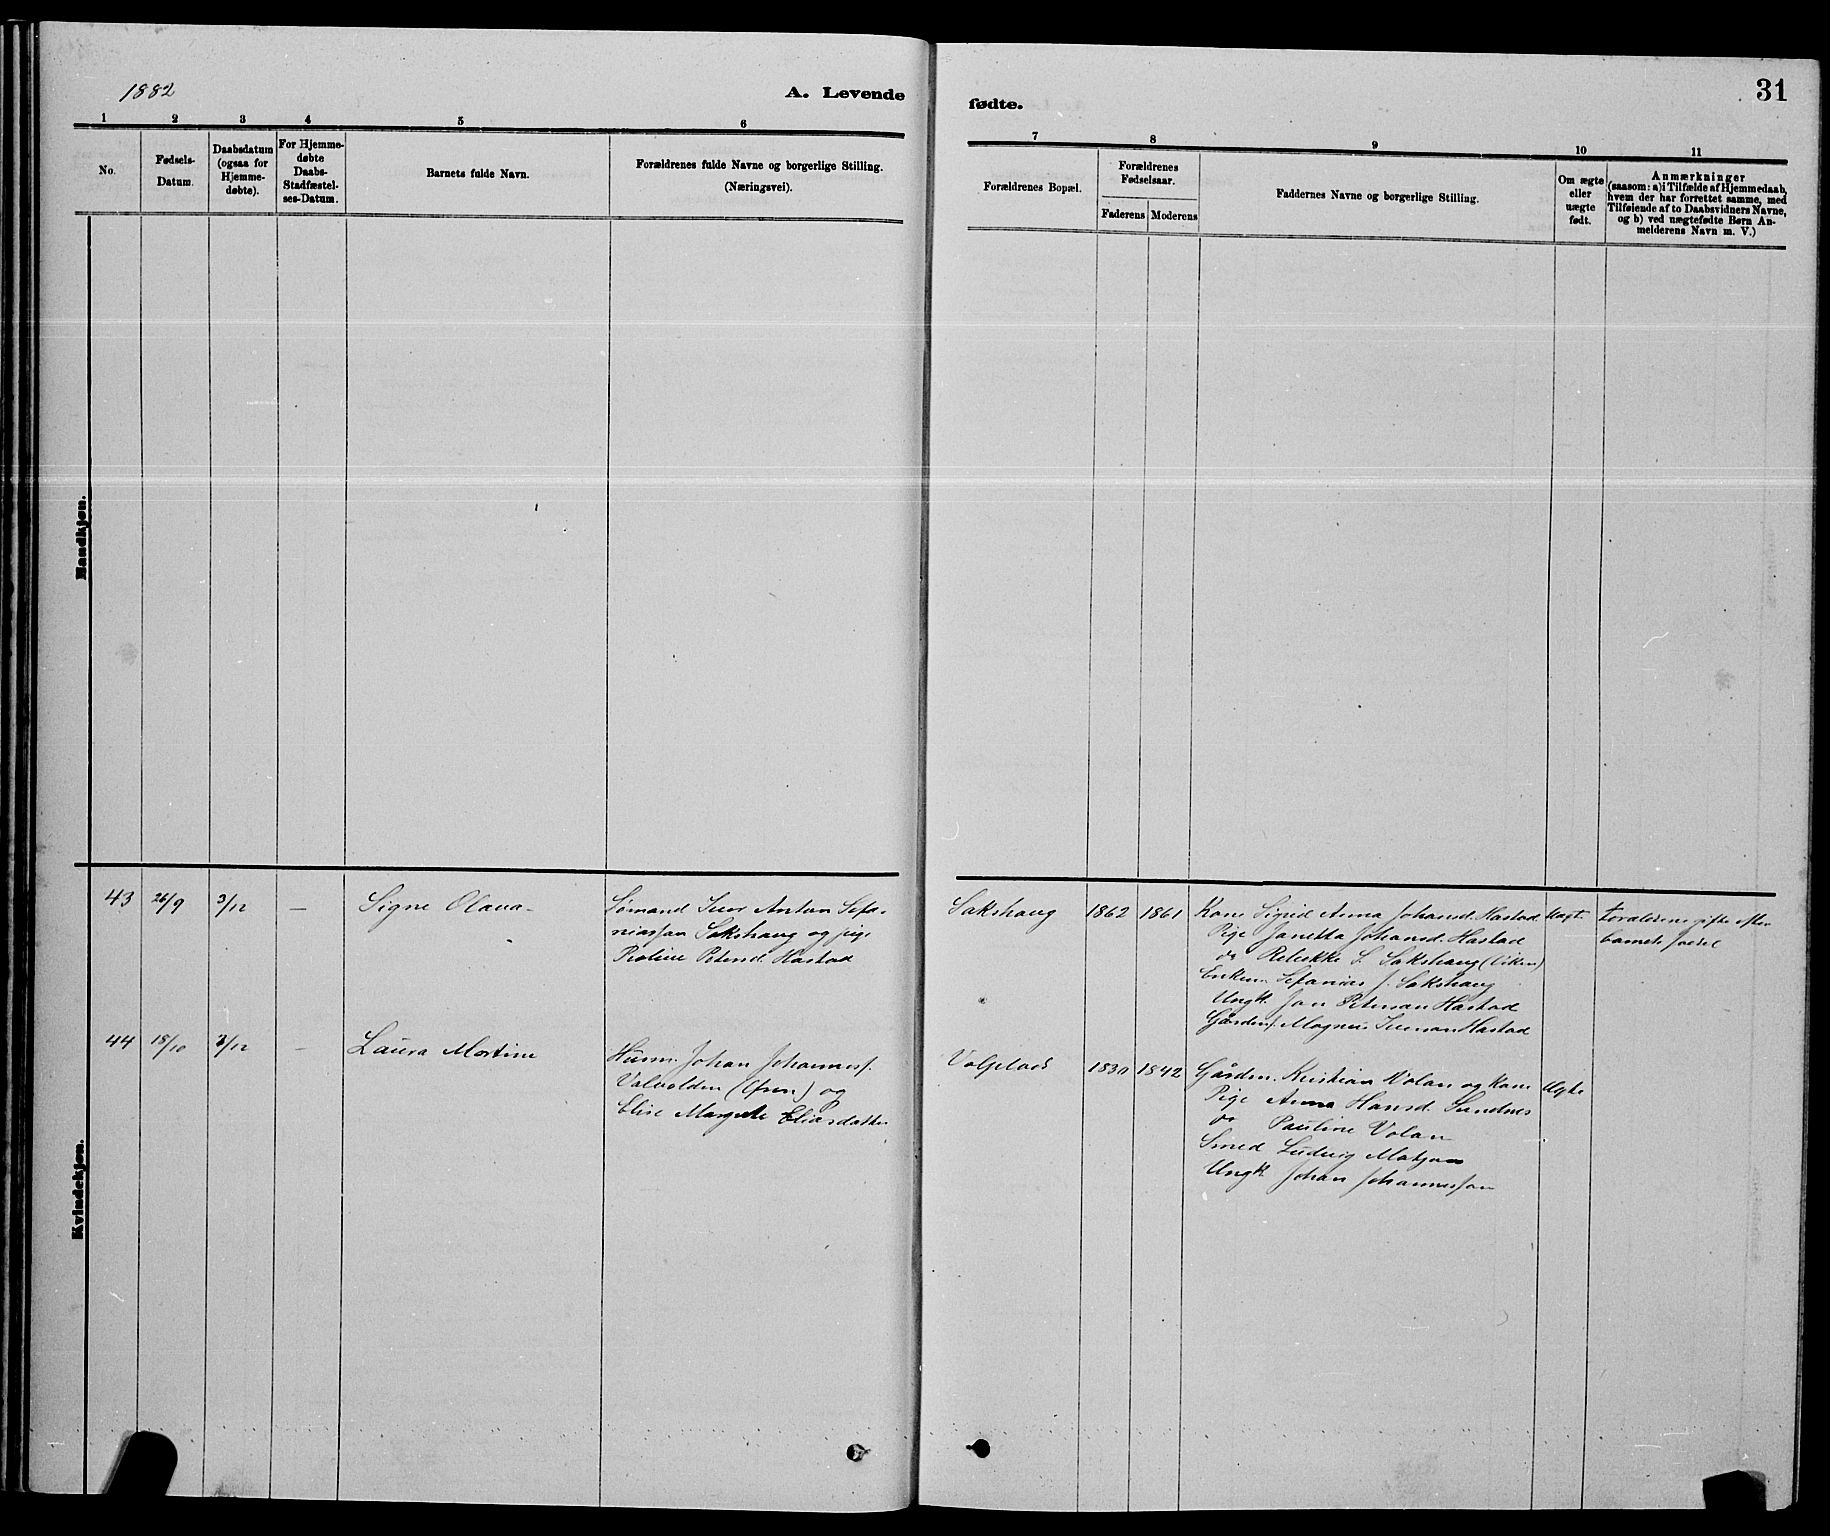 1882
A. Levende
fødte.
31
1 2 3 4 5 6 7 8 9 10 11
No.
Fødsels-
Datum.
Daabsdatum
(ogsaa for
Hjemme-
døbte).
For Hjemme-
døbte
Daabs-
Stadfæstel-
ses-Datum.
Barnets fulde Navn.
Forældrenes fulde Navne og borgerlige Stilling.
(Næringsvei).
Forældrenes Bopæl.
Forældrenes
Fødselsaar.
Faderens Moderens
Faddernes Navne og borgerlige Stilling.
Om ægte
eller
uægte
født.
Anmærkninger
(saasom: a) i Tilfælde af Hjemmedaab,
hvem der har forrettet samme, med
Tilføiende af to Daabsvidners Navne,
og b) ved uægtefødte Børn An-
melderens Navn m. V.)
Mandkjøn.
Kvindekjøn.
43 26/9 3/12 — Signe Olava
Sømand Iver Anton Sefa-
niassen Sakshaug og pige
Petersd Hastad
Sakshaug 1862 1861
Kone Sigrid Anna Johansd. Hastad
Pige Janetta Johansd. Hastad
do Rebekke S. Sakshaug (Viken)
Enkem. Sefanias J. Sakshaug
Ungk. Jon Peterson Hastad
Gårdm. Magnus Iverson Hastad
Uægte
Foreldrene gifte efter
barnets fødsel
44 18/10 3/12 — Laura Martine
Husm. Johan Johanness.
Valvolden (Øren) og
Elise Margrete Eliasdatter
1830 1842
Gårdm. Kristian Volan og Kone
Pige Anna Hansd. Sundnes
do Pauline Volan
Smed Ludvig
Ungk. Johan Johannessen
Ægte